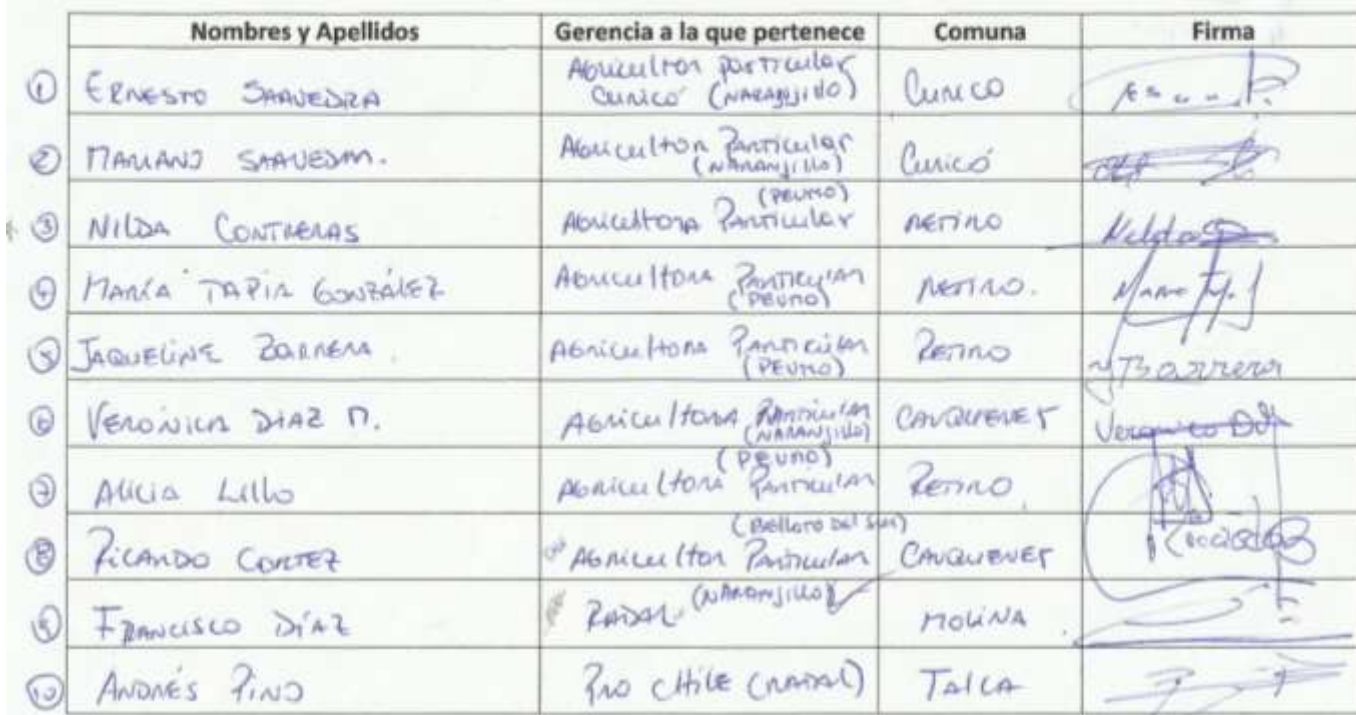 Nombres y Apellidos Gerencia a la que pertenece Comuna Firma
1 ERNESTO SAAVEDRA Agricultor particular Curicó (NARANJILLO) CURICO
2 MARIANO SAAVEDRA. Agricultor Particular (NARANJILLO) Curicó
3 NILDA CONTRERAS (PEUMO) Agricultora Particular RETIRO Nilda
4 MARÍA TAPIA GONZÁLEZ Agricultora Particular (PEUMO) RETIRO.
5 JAQUELINE BARRERA Agricultora Particular (PEUMO) RETIRO Barrera
6 VERÓNICA DIAZ M. Agricultora Particular (NARANJILLO) CAUQUENES Veronica
7 Alicia Lillo (PEUMO) Agricultora Particular RETIRO
8 RICARDO CORTEZ (Belloto del Sur) Agricultor Particular CAUQUENES
9 FRANCISCO DÍAZ RADAL (NARANJILLO) MOLINA
10 ANDRÉS PINO PRO CHILE (RADAL) TALCA